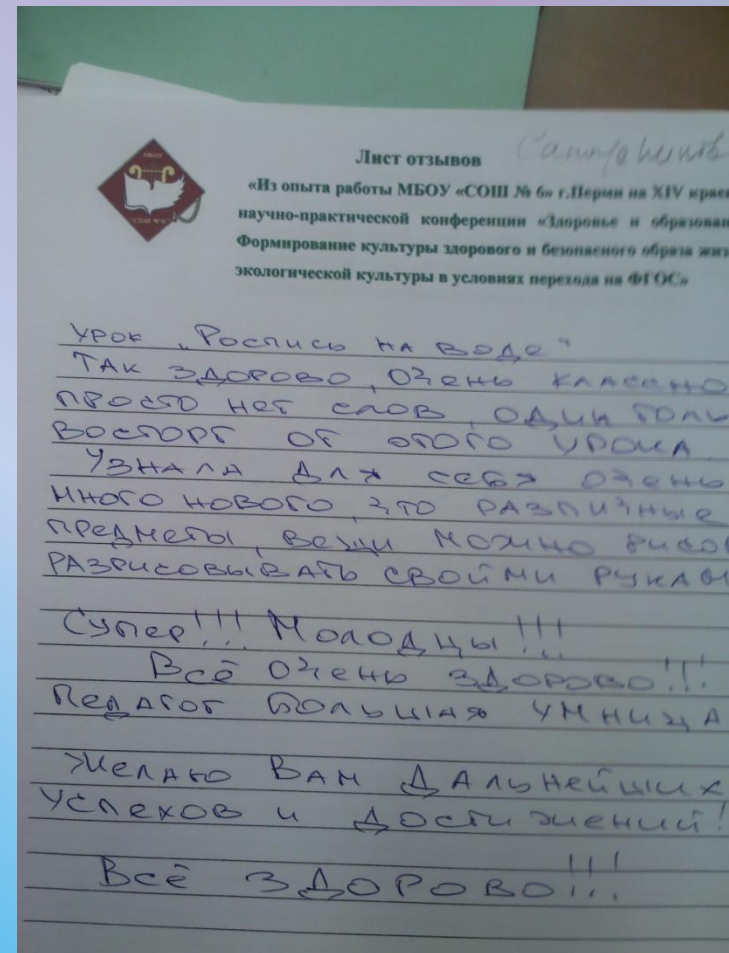 МБОУ
"СОШ № 6"
Лист отзывов
«Из опыта работы МБОУ «СОШ № 6» г.Перми на XIV краев
научно-практической конференции «Здоровье и образован
Формирование культуры здорового и безопасного образа жиз
экологической культуры в условиях перехода на ФГОС»
Урок „Роспись на воде"
Так здорово, очень классно
просто нет слов, один толь
восторг от этого урока.
Узнала для себя очень
много нового, что различные
предметы, вещи можно рисов
разрисовывать своими рукам
Супер!!! Молодцы!!!
Всё очень здорово!!!
Педагог большая умница
Желаю Вам дальнейших
успехов и достижений!
Всё здорово!!!